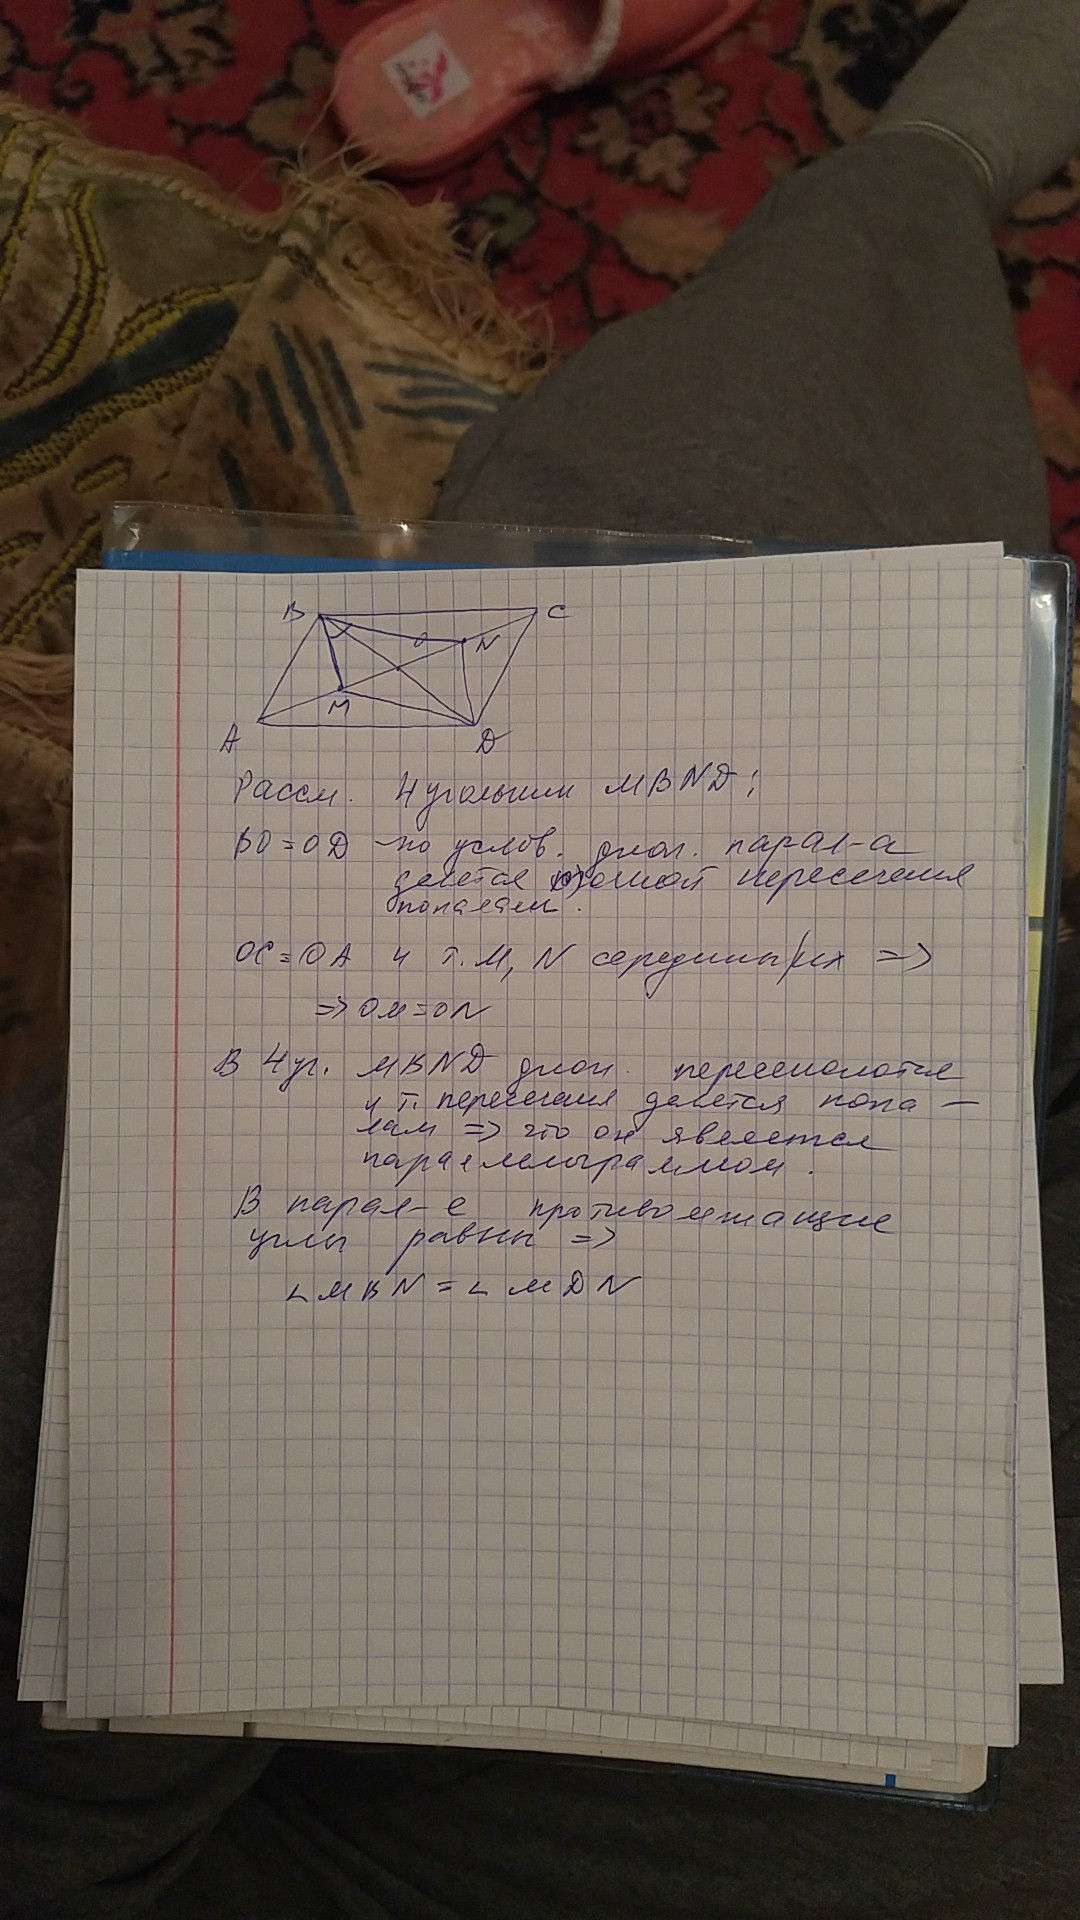 B
C
O
N
M
A
D
Рассм. 4угольник MBND:
BO=OD -по услов. диаг. парал-а
делятся точкой пересечения
пополам.
OC=OA и т.M, N середины их =>
=> OM=ON
В 4уг. MBND диаг. пересекаются
и т. пересечения делятся попо-
лам => что он является
параллелограммом.
В парал-е противолежащие
углы равны =>
∟MBN=∟MDN